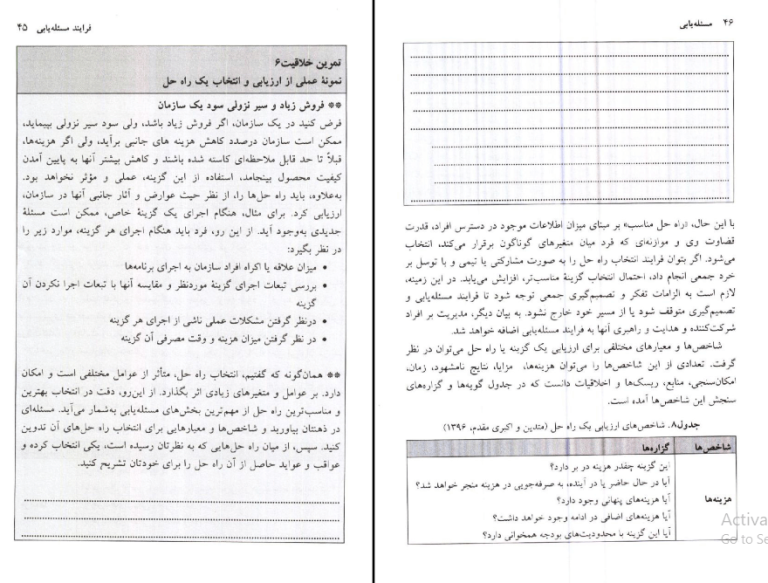 فرایند مسئله‌یابی ۴۵
تمرین خلاقیت۶
نمونهٔ عملی از ارزیابی و انتخاب یک راه حل
** فروش زیاد و سیر نزولی سود یک سازمان
فرض کنید در یک سازمان، اگر فروش زیاد باشد، ولی سود سیر نزولی بپیماید،
ممکن است سازمان درصدد کاهش هزینه های جانبی برآید، ولی اگر هزینه‌ها،
قبلاً تا حد قابل ملاحظه‌ای کاسته شده باشند و کاهش بیشتر آنها به پایین آمدن
کیفیت محصول بینجامد، استفاده از این گزینه، عملی و مؤثر نخواهد بود.
به‌علاوه، باید راه حل‌ها را، از نظر حیث عوارض و آثار جانبی آنها در سازمان،
ارزیابی کرد. برای مثال، هنگام اجرای یک گزینهٔ خاص، ممکن است مسئلهٔ
جدیدی به‌وجود آید. از این رو، فرد باید هنگام اجرای هر گزینه، موارد زیر را
در نظر بگیرد:
• میزان علاقه یا اکراه افراد سازمان به اجرای برنامه‌ها
• بررسی تبعات اجرای گزینهٔ موردنظر و مقایسه آنها با تبعات اجرا نکردن آن
گزینه
• درنظر گرفتن مشکلات عملی ناشی از اجرای هر گزینه
• در نظر گرفتن میزان هزینه و وقت مصرفی آن گزینه
** همان‌گونه که گفتیم، انتخاب راه حل، متأثر از عوامل مختلفی است و امکان
دارد. بر عوامل و متغیرهای زیادی اثر بگذارد. از این‌رو، دقت در انتخاب بهترین
و مناسب‌ترین راه حل از مهم‌ترین بخش‌های مسئله‌یابی به‌شمار می‌آید. مسئله‌ای
در ذهنتان بیاورید و شاخص‌ها و معیارهایی برای انتخاب راه حل‌های آن تدوین
کنید. سپس، از میان راه حل‌هایی که به نظرتان رسیده است، یکی انتخاب کرده و
عواقب و عواید حاصل از آن راه حل را برای خودتان تشریح کنید.
۴۶ مسئله‌یابی
با این حال، «راه حل مناسب» بر مبنای میزان اطلاعات موجود در دسترس افراد، قدرت
قضاوت وی و موازنه‌ای که فرد میان متغیرهای گوناگون برقرار می‌کند، انتخاب
می‌شود. اگر بتوان فرایند انتخاب راه حل را به صورت مشارکتی یا تیمی و با توسل بر
خرد جمعی انجام داد، احتمال انتخاب گزینهٔ مناسب‌تر، افزایش می‌یابد. در این زمینه،
لازم است به الزامات تفکر و تصمیم‌گیری جمعی توجه شود تا فرایند مسئله‌یابی و
تصمیم‌گیری متوقف شود یا از مسیر خود خارج نشود. به بیان دیگر، مدیریت بر افراد
شرکت‌کننده و هدایت و راهبری آنها به فرایند مسئله‌یابی اضافه خواهد شد.
شاخص‌ها و معیارهای مختلفی برای ارزیابی یک گزینه یا راه حل می‌توان در نظر
گرفت. تعدادی از این شاخص‌ها را می‌توان هزینه‌ها، مزایا، نتایج نامشهود، زمان،
امکان‌سنجی، منابع، ریسک‌ها و اخلاقیات دانست که در جدول گویه‌ها و گزاره‌های
سنجش این شاخص‌ها آمده است.
جدول۸. شاخص‌های ارزیابی یک راه حل (متدین و اکبری مقدم، ۱۳۹۶)
شاخص‌ها گزاره‌ها
این گزینه چقدر هزینه در بر دارد؟
آیا در حال حاضر یا در آینده، به صرفه‌جویی در هزینه منجر خواهد شد؟
هزینه‌ها آیا هزینه‌های پنهانی وجود دارد؟
آیا هزینه‌های اضافی در ادامه وجود خواهد داشت؟
آیا این گزینه با محدودیت‌های بودجه همخوانی دارد؟
Activa
Go to Se